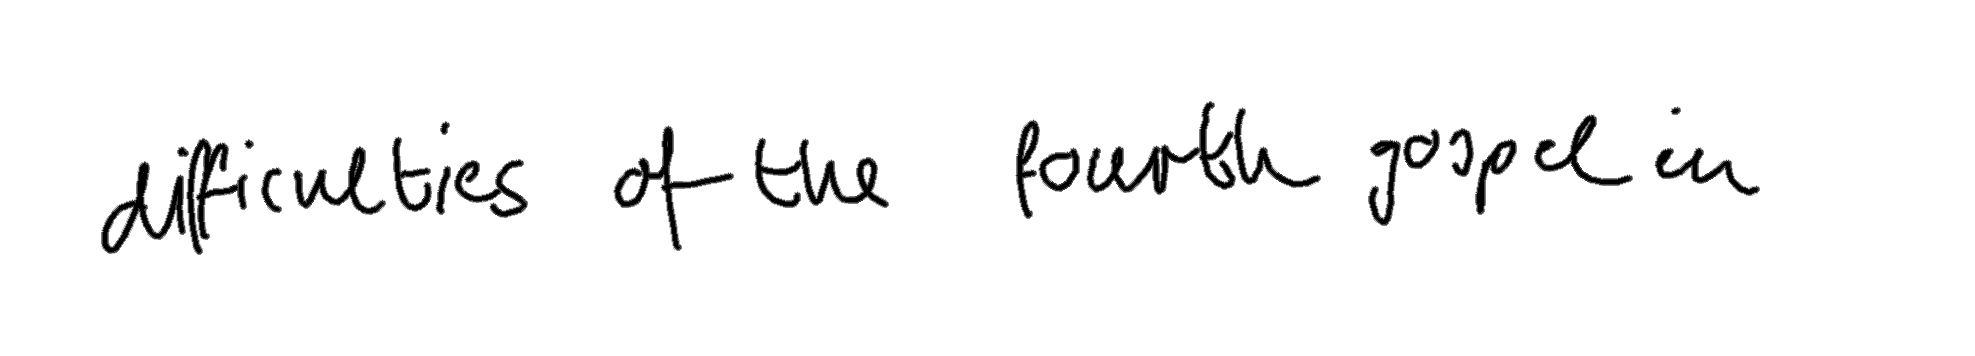 difficulties of the fourth gospel in